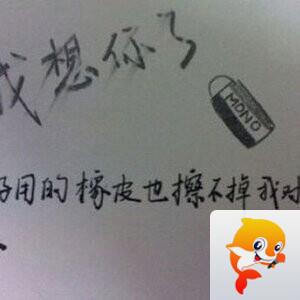 我想你了
MONO
好用的橡皮也擦不掉我对